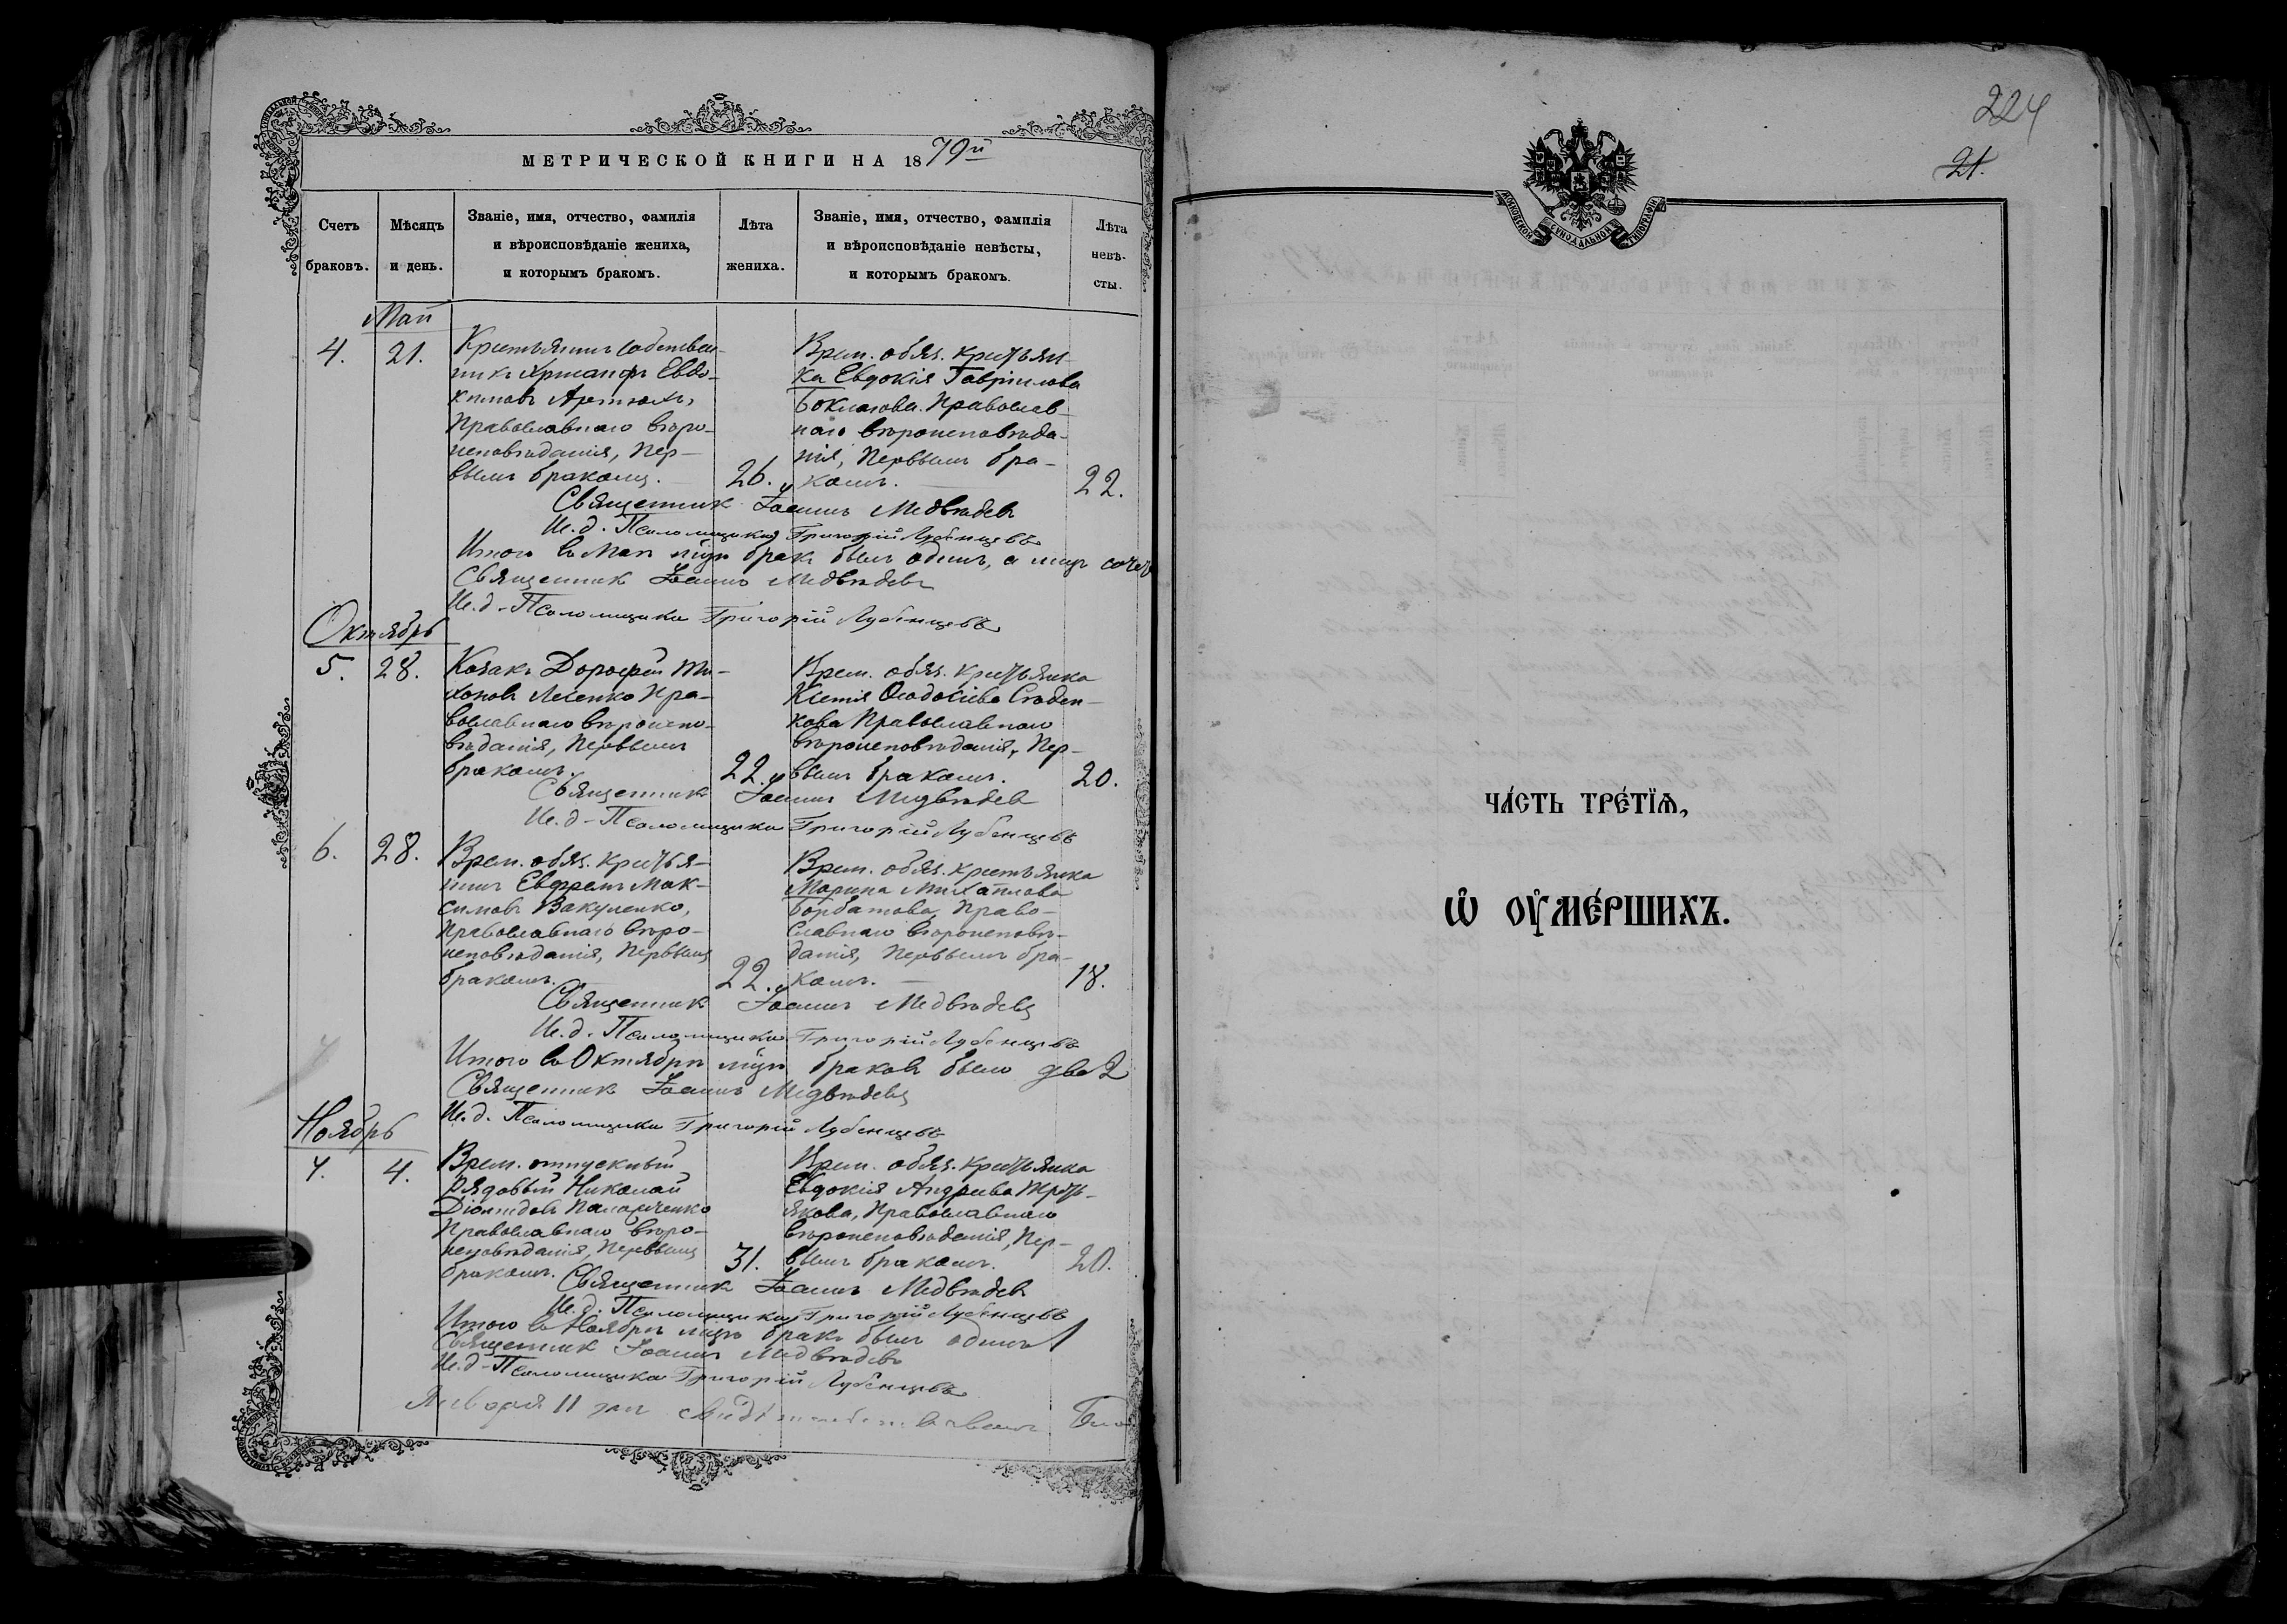 МЕТРИЧЕСКОЙ КНИГИ НА 1879й
Счетъ браковъ.
Мѣсяцъ и день.
Званіе, имя, отчество, фамилія
и вѣроисповѣданіе жениха,
и которымъ бракомъ.
Лѣта жениха.
Званіе, имя, отчество, фамилія
и вѣроисповѣданіе невѣсты,
и которымъ бракомъ.
Лѣта невѣ-
сты.
Май
4. 21.
Крестьянинъ собствен-
никъ Евдо-
кимовъ
Православнаго вѣро-
исповѣданія, пер-
вымъ бракомъ.
26.
Врем. обяз. крестьян-
ка Евдокія Гавріилова
Православ-
наго вѣроисповѣда-
нія, первымъ бра-
комъ.
22.
Священникъ Іоаннъ Медвѣдевъ
И.д. Псаломщика Григорій Лубенцевъ
Итого въ Маѣ м-цѣ бракъ былъ одинъ, а
Священникъ Іоаннъ Медвѣдевъ
И.д. Псаломщика Григорій Лубенцевъ
Октябрь
5. 28.
Козакъ Дорофей Ти-
хоновъ Лесенко Пра-
вославнаго вѣроиспо-
вѣданія, первымъ
бракомъ.
22.
Врем. обяз. крестьянка
Ксенія Ѳеодосіева
Православнаго
вѣроисповѣданія, пер-
вымъ бракомъ.
20.
Священникъ Іоаннъ Медвѣдевъ
И.д. Псаломщика Григорій Лубенцевъ
6. 28.
Врем. обяз. крестья-
нинъ Евфремъ Мак-
симовъ Вакуленко,
Православнаго вѣро-
исповѣданія, первымъ
бракомъ.
22.
Врем. обяз. крестьянка
Марина Михайлова
Горбатова, Право-
славнаго вѣроисповѣ-
данія, первымъ бра-
комъ.
18.
Священникъ Іоаннъ Медвѣдевъ
И.д. Псаломщика Григорій Лубенцевъ
Итого въ Октябрѣ м-цѣ браковъ было два 2
Священникъ Іоаннъ Медвѣдевъ
И.д. Псаломщика Григорій Лубенцевъ
Ноябрь
7. 4.
Врем. отпускный
рядовый Николай
Діомидовъ
Православнаго вѣро-
исповѣданія, первымъ
бракомъ.
31.
Врем. обяз. крестьянка
Евдокія Андреева
Православнаго
вѣроисповѣданія, пер-
вымъ бракомъ.
20.
Священникъ Іоаннъ Медвѣдевъ
И.д. Псаломщика Григорій Лубенцевъ
Итого въ Ноябрѣ м-цѣ бракъ былъ одинъ 1
Священникъ Іоаннъ Медвѣдевъ
И.д. Псаломщика Григорій Лубенцевъ
Января 11 дня
224
21.
МОСКОВСКОЙ СѴНОДАЛЬНОЙ ТИПОГРАФІИ
ЧА́СТЬ ТРЕ́ТЇѦ,
Ѡ҆ ОУ҆МЕ́РШИХЪ.